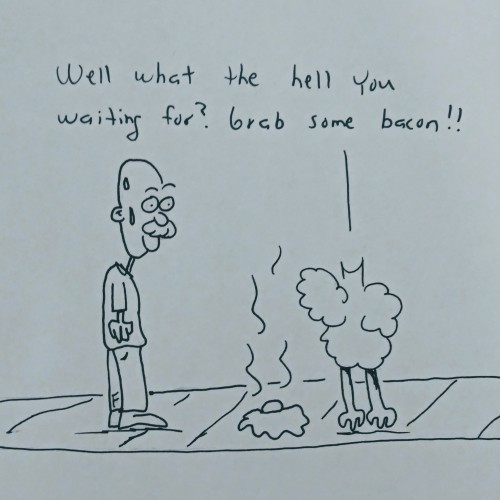 Well what the hell you
waiting for? Grab some bacon!!